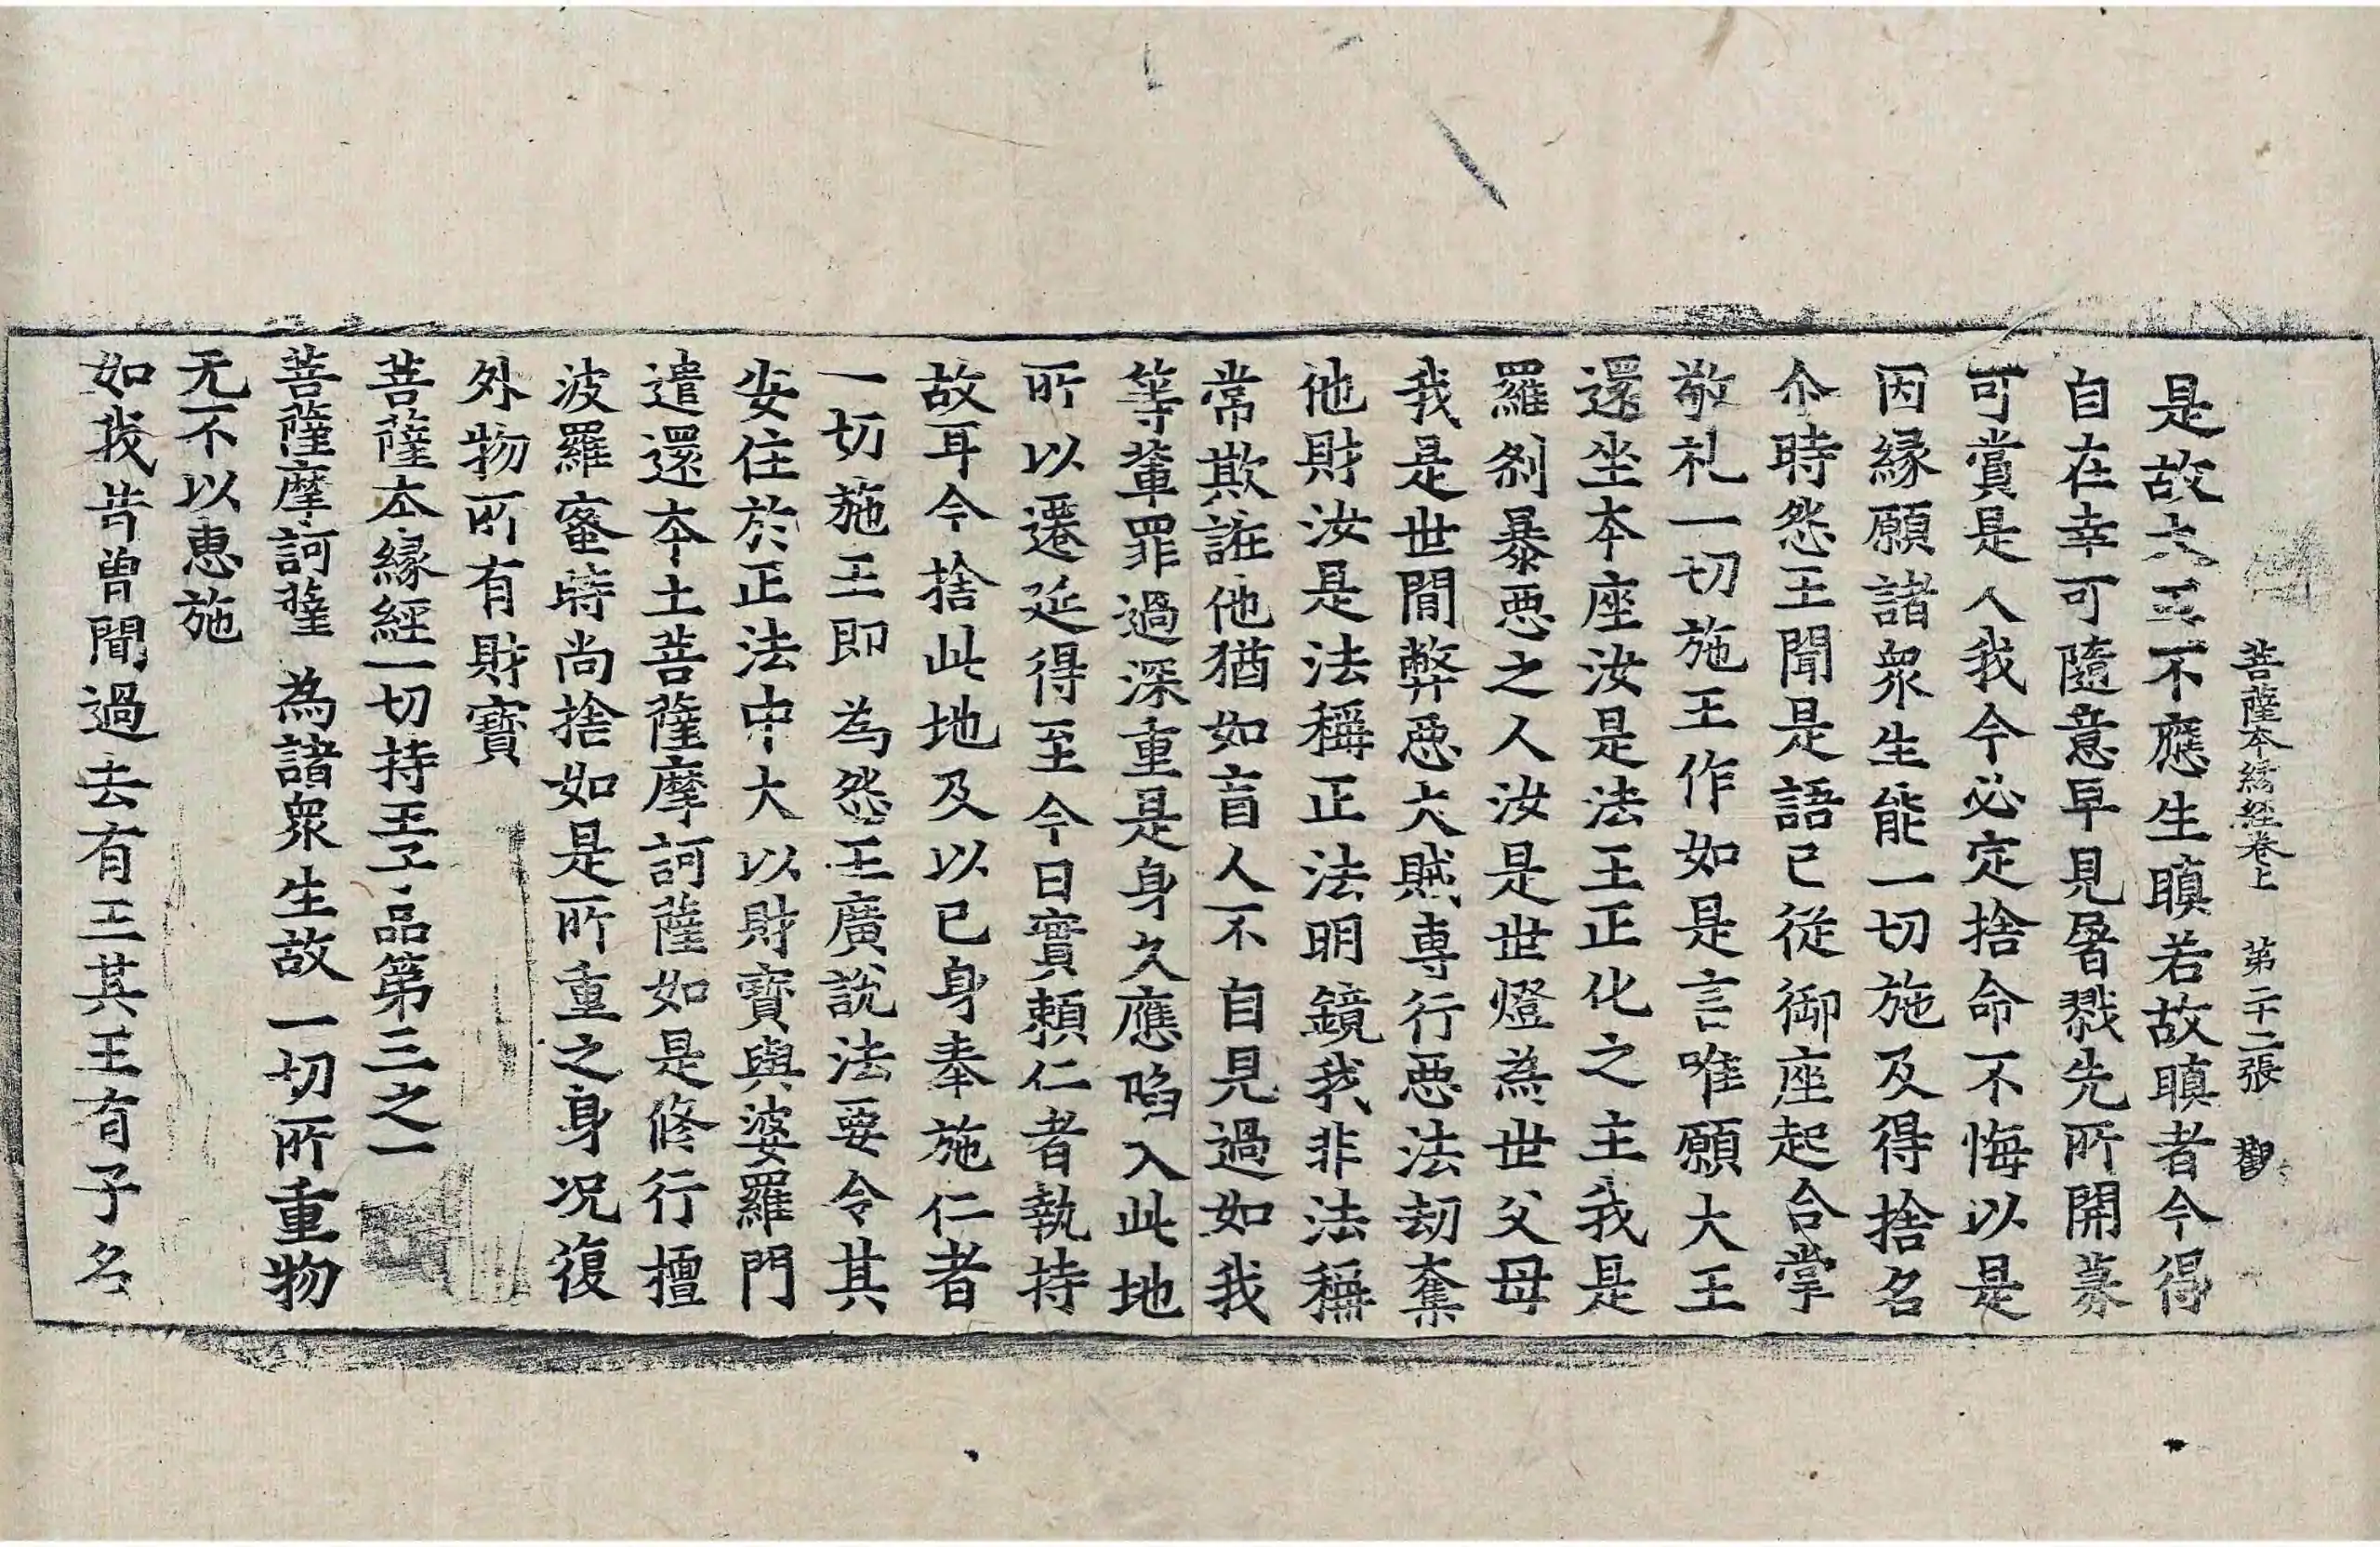 菩薩本緣經卷上 第二十二張 觀
是故大王不應生瞋若故瞋者今得
自在幸可隨意早見屠戮先所開募
可賞是人我今必定捨命不悔以是
因緣願諸衆生能一切施及得捨名
尒時怨王聞是語已從御座起合掌
敬礼一切施王作如是言唯願大王
還坐本座汝是法王正化之主我是
羅剎暴惡之人汝是世燈為世父母
我是世閒弊惡大賊專行惡法劫奪
他財汝是法稱正法明鏡我非法稱
常欺誑他猶如盲人不自見過如我
等輩罪過深重是身久應陷入此地
所以遷延得至今日實賴仁者執持
故耳今捨此地及以已身奉施仁者
一切施王即為怨王廣說法要令其
安住於正法中大以財寶與婆羅門
遣還本土菩薩摩訶薩如是修行檀
波羅蜜時尚捨如是所重之身况復
外物所有財寶
菩薩本緣經一切持王子品第三之一
菩薩摩訶薩為諸衆生故一切所重物
无不以惠施
如我昔曾聞過去有王其王有子名